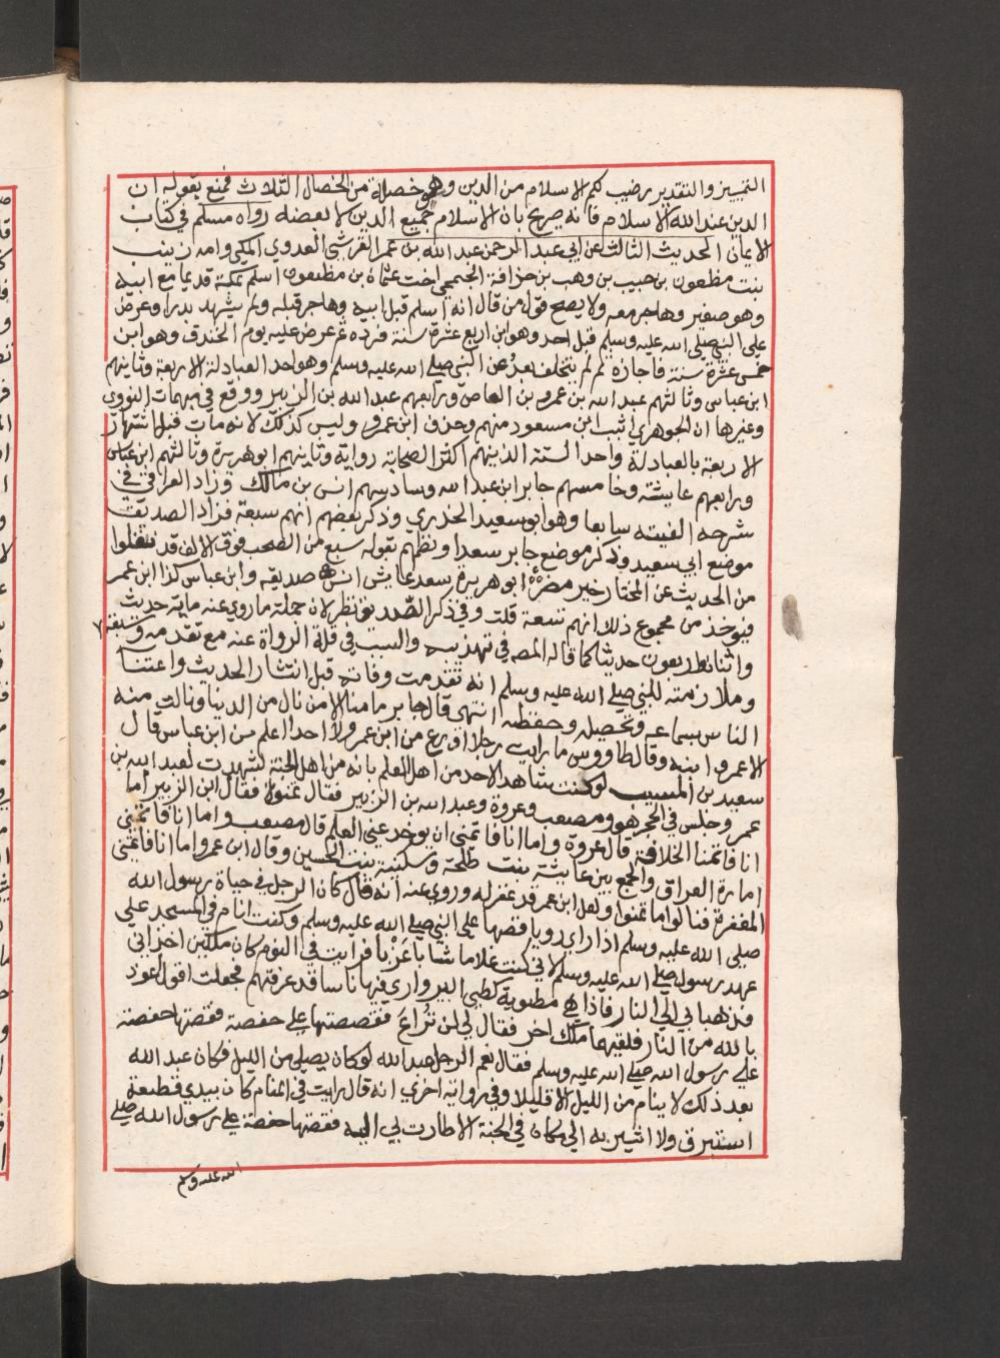 التمييز والتقدير رضيت لكم الاسلام من الدين وهو خصلة من الخصال الثلاث فمنع بقوله ان
الدين عند الله الاسلام فانه صريح بان الاسلام جميع الدين لا بعضه رواه مسلم في كتاب
الايمان الحديث الثالث عن ابي عبد الرحمن عبد الله بن عمر القرشي العدوي المكي وامه زينب
بنت مظعون بن حبيب بن وهب بن حذافة الجمحي اخت عثمان بن مظعون اسلم بمكة قديما مع ابيه
وهو صغير وهاجر معه ولا يصح قول من قال انه اسلم قبل ابيه وهاجر قبله ولم يشهد بدرا وعرض
على النبي صلى الله عليه وسلم قبل احد وهو ابن اربع عشرة سنة فرده ثم عرض عليه يوم الخندق وهو ابن
خمس عشرة سنة فاجازه ثم لم يتخلف بعد عن النبي صلى الله عليه وسلم وهو احد العبادلة الاربعة وثانيهم
ابن عباس وثالثهم عبد الله بن عمرو بن العاص ورابعهم عبد الله بن الزبير ووقع في مبهمات النووي
وغيرها ان الجوهري اثبت ابن مسعود منهم وحذف ابن عمرو وليس كذلك لانه مات قبل اشتهار
الاربعة بالعبادلة واحد الستة الذين هم اكثر الصحابة رواية وثانيهم ابو هريرة وثالثهم ابن عباس
ورابعهم عايشة وخامسهم جابر ابن عبد الله وسادسهم انس بن مالك وزاد العراقي في
شرحه الفيته سابعا وهو ابو سعيد الخدري وذكر بعضهم انهم سبعة فزاد الصديقة
موضع ابي سعيد وذكر موضع جابر سعدا ونظمهم بقوله سبع من الصحب فوق الالف قد نقلوا
من الحديث عن المختار خير مضر ابو هريرة سعد عايش انس صديقه وابن عباس كذا ابن عمر
فيوخذ من مجموع ذلك انهم تسعة قلت وفي ذكر الصديق نظر لان جملة ما روي عنه ماية حديث
واثنان واربعون حديثا كما قاله المصه في تهذيبه والسبب في قلة الرواة عنه مع تقدمه وسبقه
وملازمته للنبي صلى الله عليه وسلم انه تقدمت وفاته قبل انتشار الحديث واعتنا
الناس بسماعه وتحصيله وحفظه انتهى قال جابر ما منا الا من نال من الدنيا ونالت منه
الا عمر وابنه وقال طاووس ما رايت رجلا اورع من ابن عمر ولا احدا اعلم من ابن عباس قال
سعيد بن المسيب لو كنت شاهدا لاحد من اهل العلم بانه من اهل الجنة لشهدت لعبد الله بن
عمر وجلس في الحجر هو ومصعب وعروة وعبد الله بن الزبير فقال تمنوا فقال ابن الزبير اما
انا فاتمنا الخلافة قال عروة واما انا فاتمنى ان يوخذ عني العلم قال مصعب واما انا فاتمنى
امارة العراق والجمع بين عايشة بنت طلحة وسكينة بنت الحسين وقال ابن عمر واما انا فاتمنى
المغفرة فنالوا ما تمنوا ولعل ابن عمر قد غفر له وروي عنه انه قال كان الرجل في حياة رسول الله
صلى الله عليه وسلم اذا راي رويا قصها على النبي صلى الله عليه وسلم وكنت انام في المسجد على
عهد رسول صلى الله عليه وسلم لاني كنت غلاما شابا عزبا فرايت في النوم كان ملكين اخذاني
فذهبا بي الى النار فاذا هي مطوية كطي البير واري فيها ناسا قد عرفتهم فجعلت اقول اعوذ
بالله من النار فلقيهما ملك اخر فقال لي لن تراع فقصصتها على حفصة فقصتها حفصة
على رسول الله صلى الله عليه وسلم فقال نعم الرجل عبد الله لو كان يصلي من الليل فكان عبد الله
بعد ذلك لا ينام من الليل الا قليلا وفي رواية اخري انه قال رايت في المنام كان بيدي قطعة
استبرق ولا اشير به الى مكان في الجنة الا طارت بي اليه فقصتها حفصة على رسول الله صلى
الله عليه وسلم